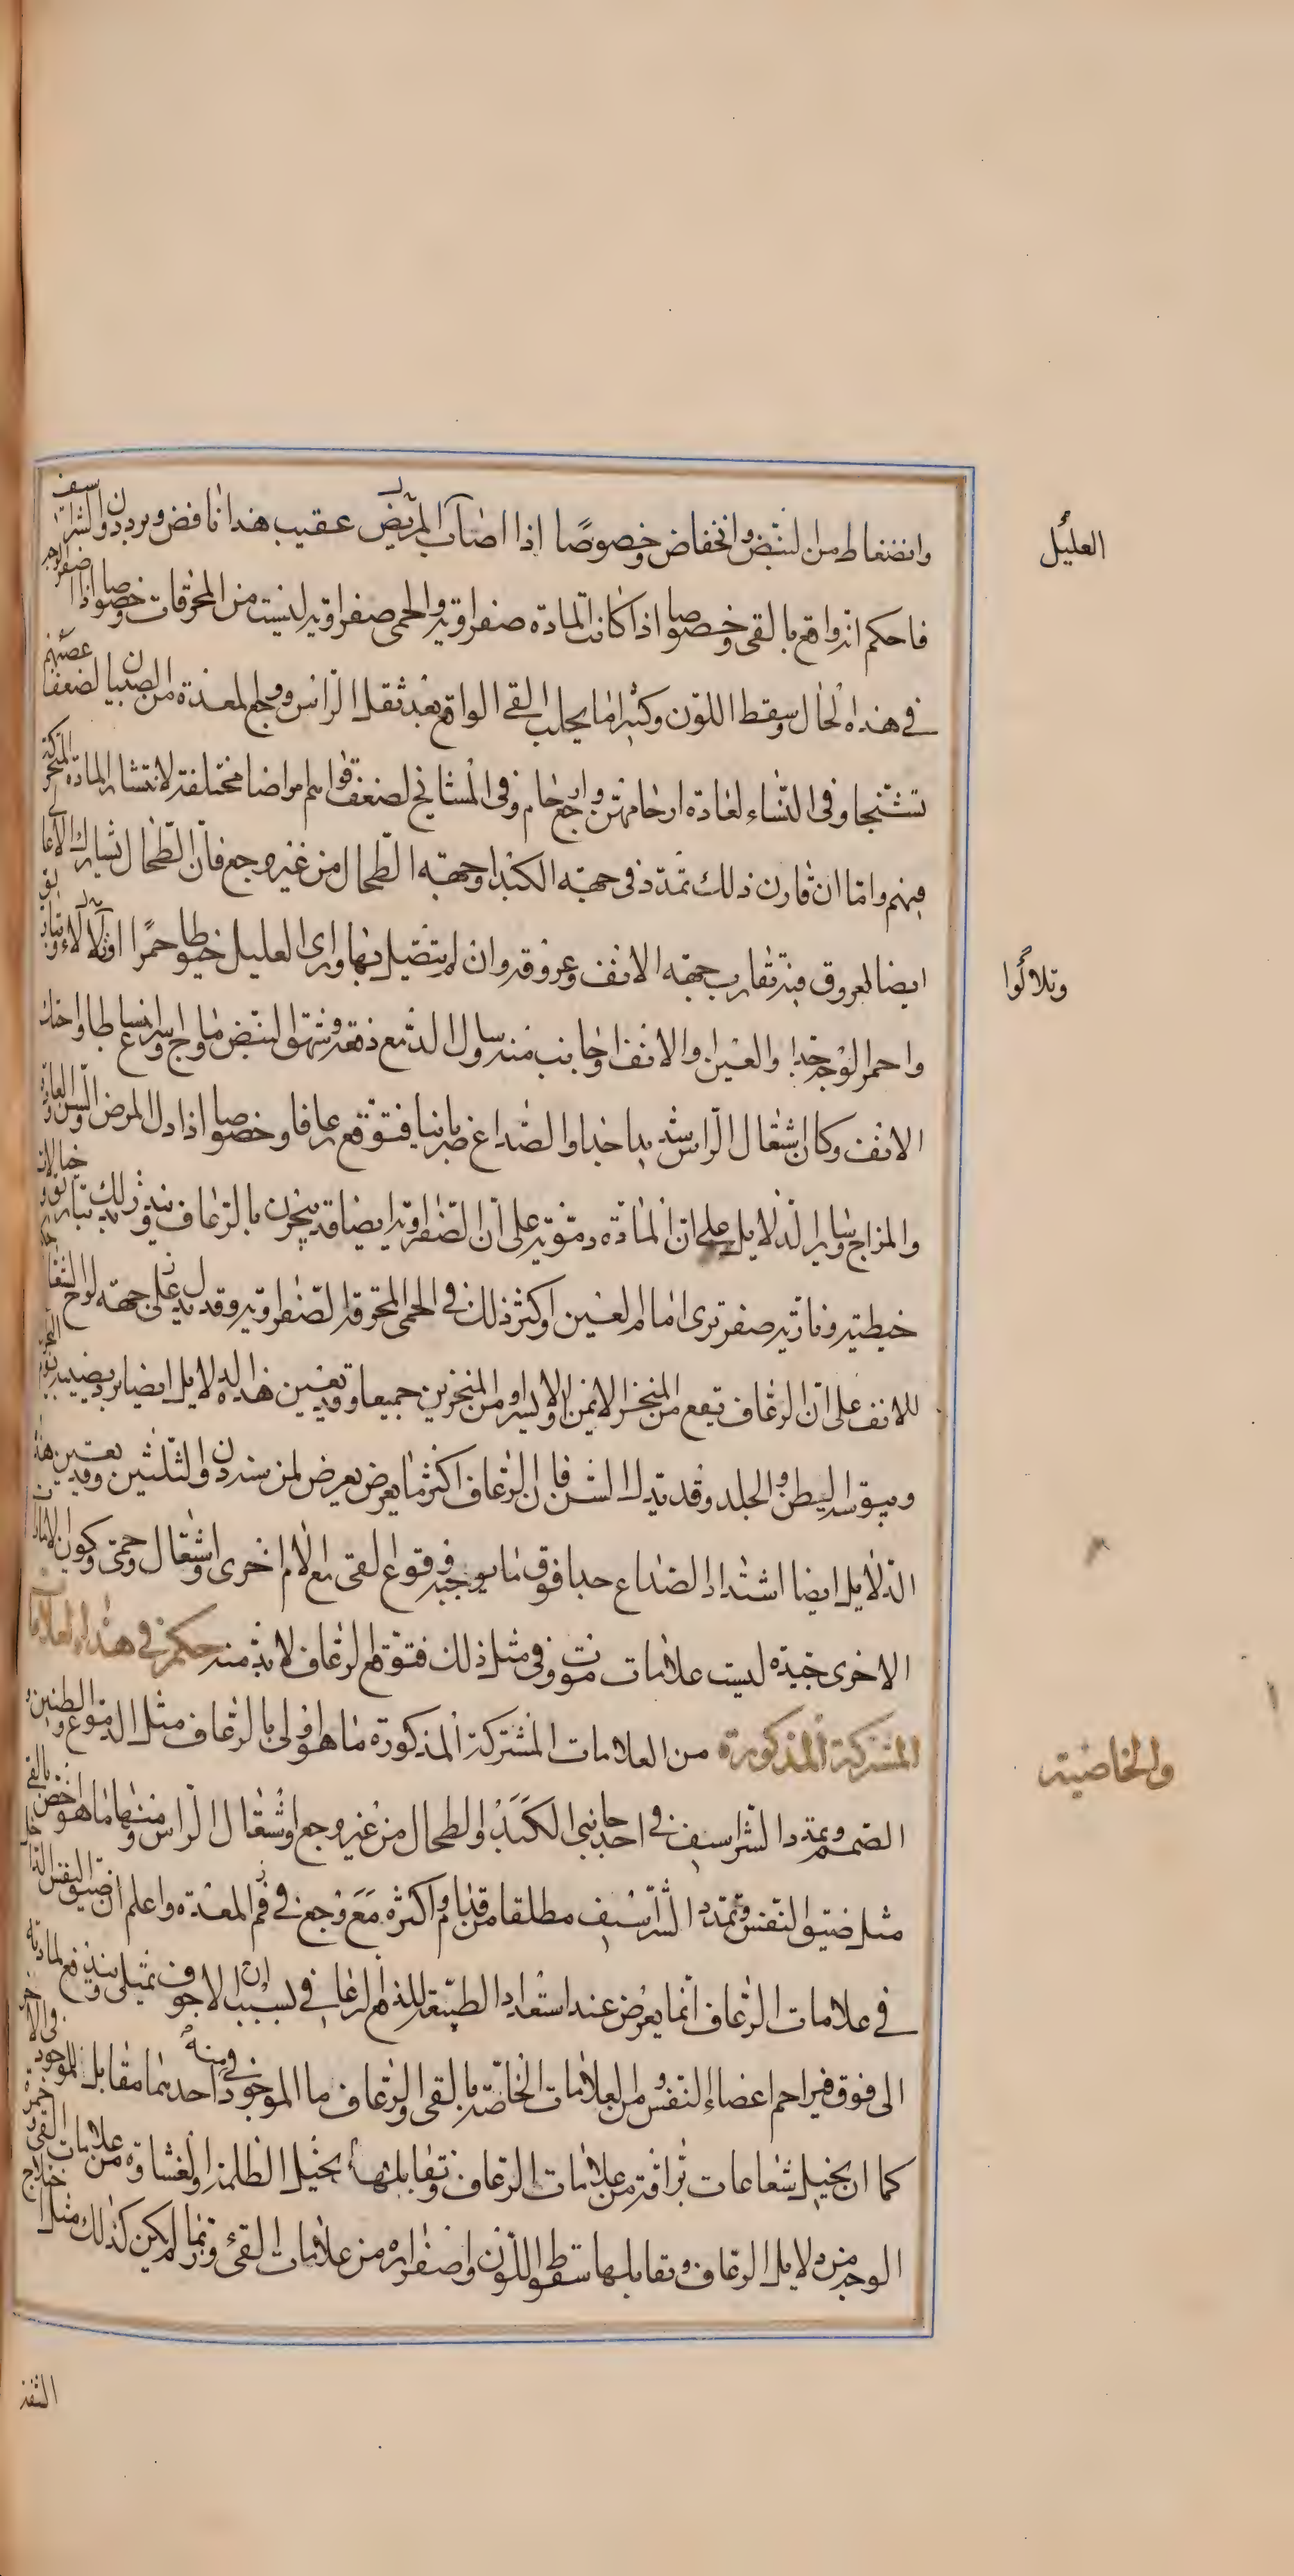 وانضغاط من النبض وانخفاض وخصوصًا اذا اصاب المريض عقيب هذا نافض وبرد دون الشراسيف
العليل
فاحكم انه واقع بالقى وخصوصا اذا كانت المادة صفراوية والحمى صفراوية ليست من المحرقات وخصوصا اذا اصفر الوجه
في هذه الحال وسقط اللون وكثيرا ما يجلب القى الواقع بعد ثقل الراس ووجع المعدة من الصبيان لضعف عصبهم
تشنجا وفى النساء لعادة ارحامهن وجع ارحام وفى المشايخ لضعف قواهم امراضا مختلفة لانتشار المادة المتحركة
فيهم واما ان قارن ذلك تمدد فى جهة الكبد او جهة الطحال من غير وجع فان الطحال يشارك الاعالى
ايضا لعروق فيه تقارب جهة الانف وعروقه وان لم يتصل بها وراى العليل خيوطا حمرًا اوتلألاء
وتلالُوا
واحمر الوجه جدا والعين او الانف او جانب منه وسال الدمع دفعة وشهق النبض وماج واسرع انبساطا واحتك
الانف وكان اشتعال الراس شديدا جدا والصداع ضربانيا فتوقع رعافا وخصوصا اذا دل المرض والسن والعادة
والمزاج وساير الدلايل على ان المادة دموية على ان الصفراوية ايضا قد بحرن بالرعاف وينذر بذلك خيالات
خيطية ونارية صفر ترى امام العين واكثر ذلك في الحمى المحرقة الصفراوية وقد يدل على جهة
للانف على ان الرعاف يقع من المنخر الايمن او الايسر او من المنخرين جميعا وقد تعين هذه الدلايل ايضا برد يصيب
ويبوسة البطن والجلد وقد يدل السن فان الرعاف اكثر ما يعرض يعرض لمن سنه دون الثلثين وقد يعين هذه
الدلايل ايضا اشتداد الصداع جدا فوق ما يوجبه وقوع القى مع الام اخرى واشتعال وحمى وكون الامارات
الاخرى جيدة ليست علامات موت وفى مثل ذلك فتوقع الرعاف لابد منه حكم في هذه العلامات
المشتركة المذكورة من العلامات المشتركة المذكورة ما هو اولى بالرعاف مثل الدموع والطنين و
والخاصية
الصمم وتمدد الشراسيف في احد جانبى الكبد والطحال من غير وجع واشتعال الراس ومنها ما هو اخص بالقى
مثل ضيق النفس وتمدد الشراسيف مطلقا من قدام واكثره مع وجع في فم المعدة واعلم ان ضيق النفس الداخل
في علامات الرعاف انما يعرض عند استعداد الطبيعة للدفع الرعافي بسبب ان الاجوف تمتلى ويندفع مادته
الى فوق فيزاحم اعضاء النفس ومن العلامات الخاصة بالقى والرعاف ما الموجود منه في احدهما مقابل للموجود فى الاخر
كما ان تخيل شعاعات براقة من علامات الرعاف وتقابلها تخيل الظلمة والغشاوة من علامات القى وحمرة
الوجه من دلايل الرعاف وتقابلها سقوط اللون واصفراره من علامات القئ وربما لم يكن كذلك مثل اختلاج
الشفة